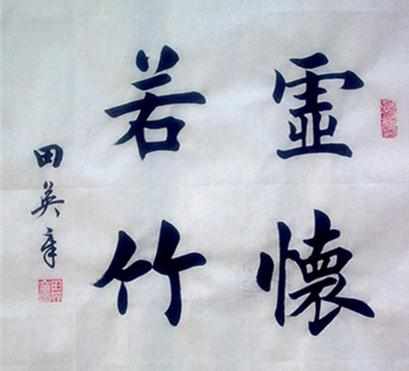 虛懷
若竹
田英章